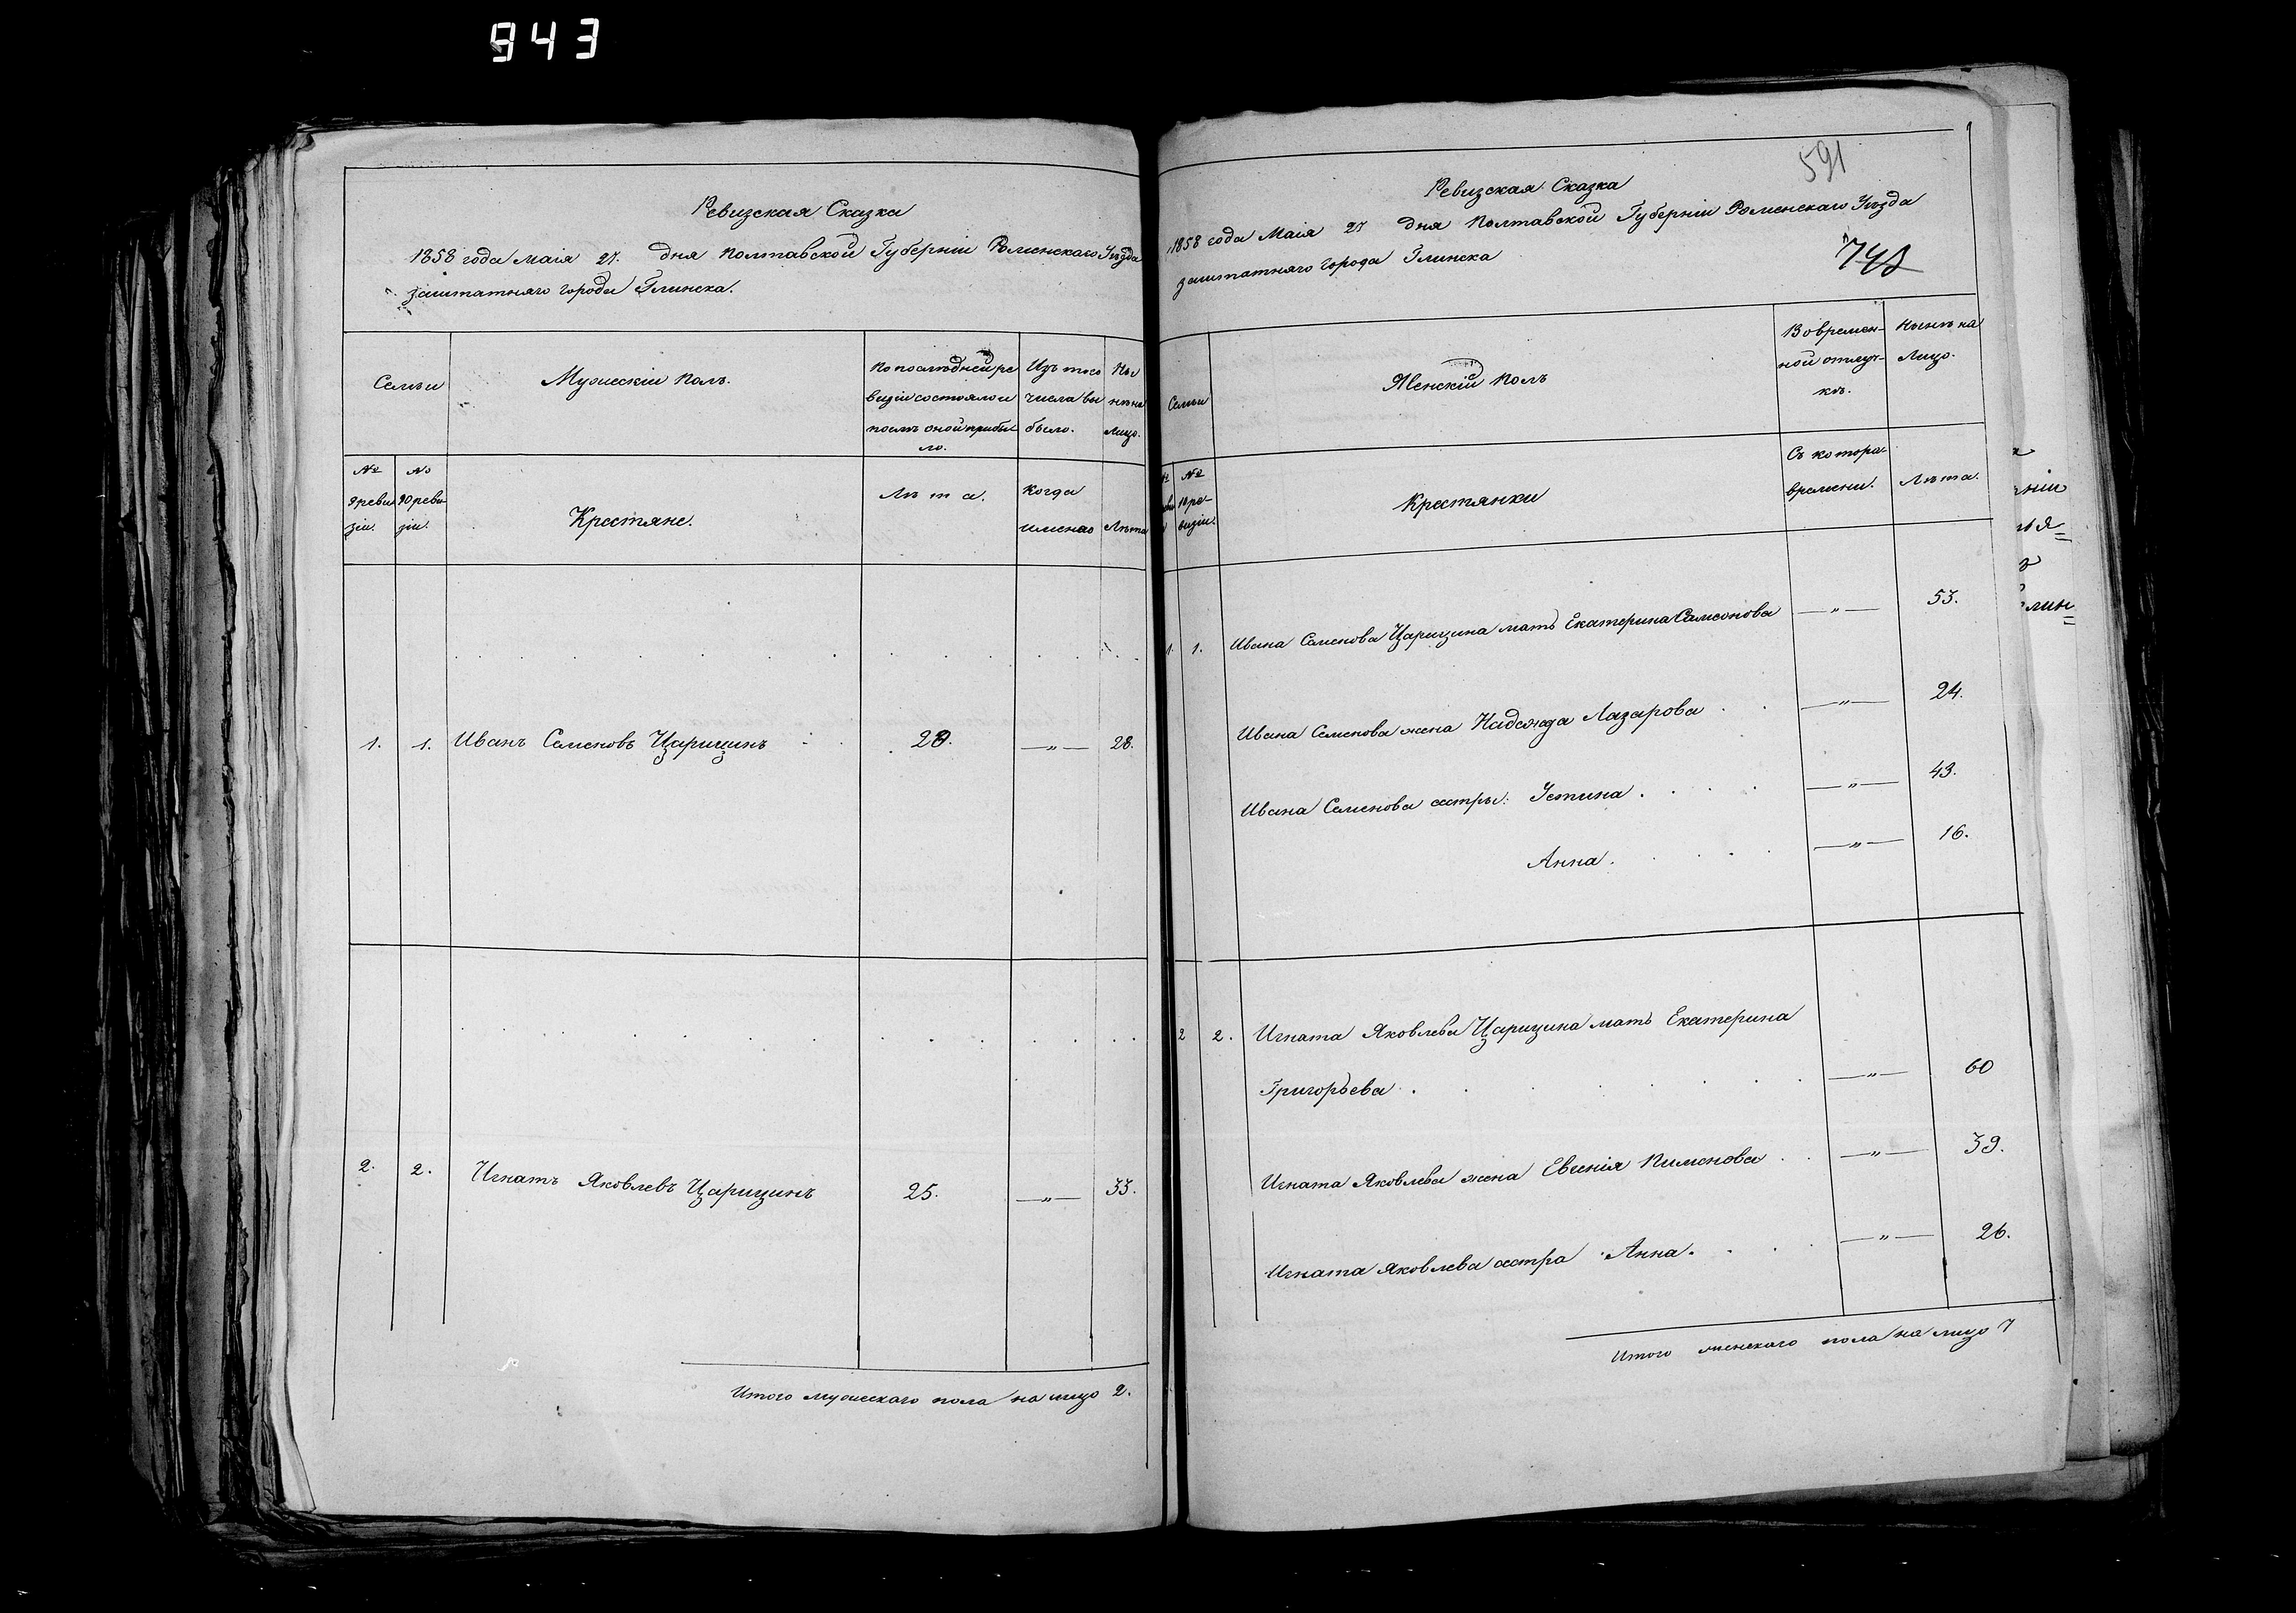 943
Ревизская Сказка
1858 года маія 27. дня Полтавской Губерніи Роменскаго Уѣзда
заштатнаго города Глинска.
Семьи
Мужескій Полъ.
По послѣдней ре
визіи состояло и
послѣ оной прибы
ло.
Изъ того
числа вы
было.
Ны
нѣ на
лицо.
№ 9 реви
зіи.
№ 10 реви
зіи.
Крестяне.
Лѣта.
Когда
именно
Лѣта
1. 1. Иванъ Семеновъ Царицинъ 20. —„— 28.
2. 2. Игнатъ Яковлевъ Царицинъ 25. —„— 33.
Итого мужескаго пола на лицо 2.
591
748
Ревизская Сказка
1858 года Маія 27 дня Полтавской Губерніи Роменскаго Уѣзда
заштатняго города Глинска
Семьи
Женскій Полъ
Во времен-
ной отлуч-
кѣ.
Нынѣ на
Лицо.
№ 10 ре-
визіи.
Крестянки
Съ котора
времени.
Лѣта.
1. 1. Ивана Семенова Царицина мать Екатерина Самсонова —„— 53.
Ивана Семенова жена Надежда Лазарова —„— 24.
Ивана Семенова сестры: Устина —„— 43.
Анна —„— 16.
2 2. Игната Яковлева Царицина мать Екатерина
Григорьева —„— 60
Игната Яковлева жена Евгенія Пименова —„— 39.
Игната Яковлева сестра Анна —„— 26.
Итого женскаго пола на лицо 7